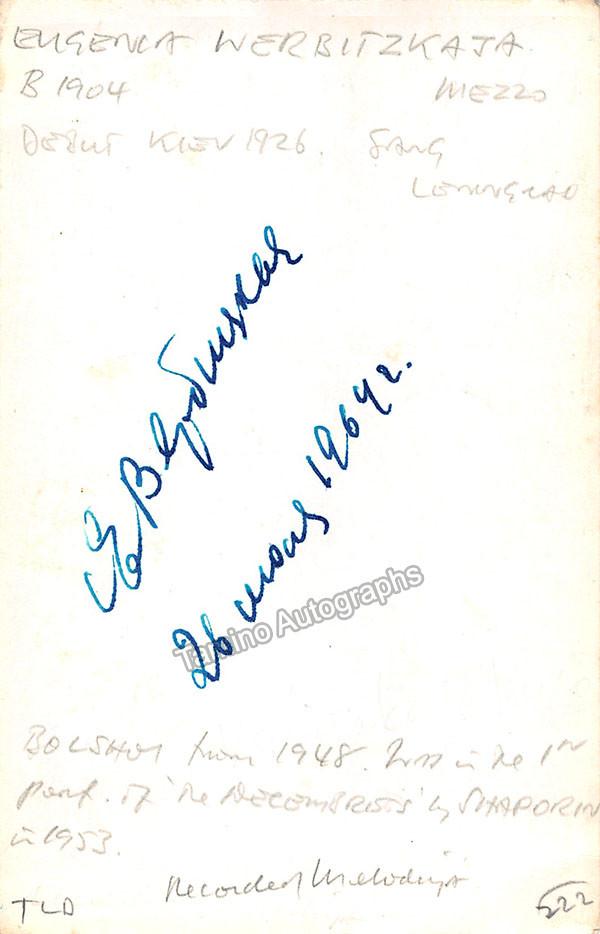 EUGENIA WERBITZKAJA
B 1904 MEZZO
DEBUT KIEV 1926. SANG
LENINGRAD
Е Вербицкая
26 июля 1964 г.
Tamino Autographs
BOLSHOI from 1948. Was in the 1st
perf. of 'The DECEMBRISTS' by SHAPORIN
in 1953.
Recorded Melodiya
TLD 522